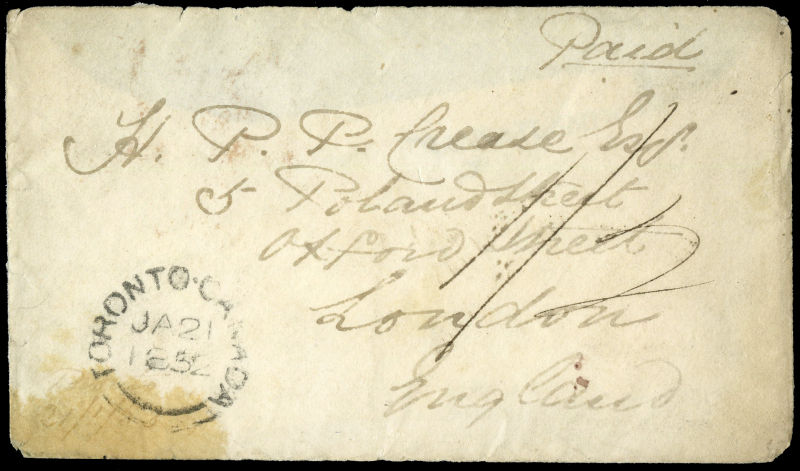 Paid
H. P. P. Crease Esqr.
5 Poland Street
Oxford Street
London
England
TORONTO·CANADA
JA 21
1852